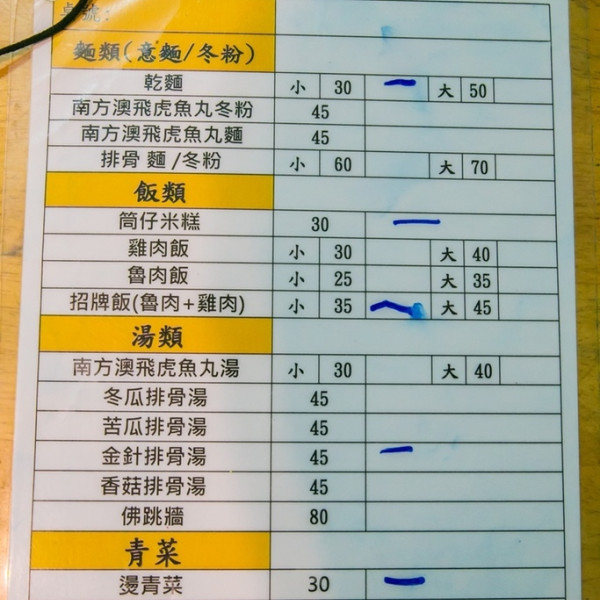 桌號:
麵類(意麵/冬粉)
乾麵 小 30 大 50
南方澳飛虎魚丸冬粉 45
南方澳飛虎魚丸麵 45
排骨 麵 /冬粉 小 60 大 70
飯類
筒仔米糕 30
雞肉飯 小 30 大 40
魯肉飯 小 25 大 35
招牌飯(魯肉+雞肉) 小 35 大 45
湯類
南方澳飛虎魚丸湯 小 30 大 40
冬瓜排骨湯 45
苦瓜排骨湯 45
金針排骨湯 45
香菇排骨湯 45
佛跳牆 80
青菜
燙青菜 30